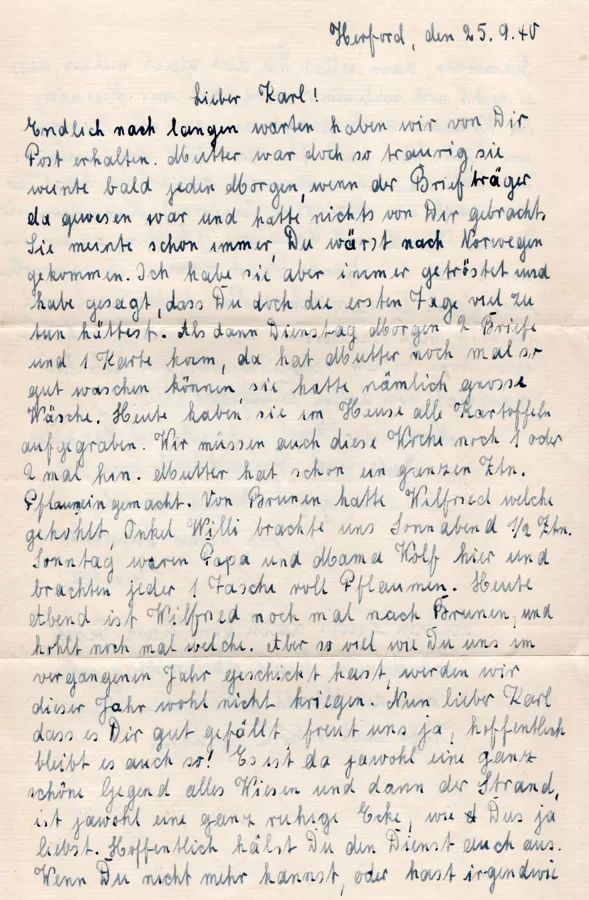 Herford, den 25.9.40
Lieber Karl!
Endlich nach langen warten haben wir von Dir
Post erhalten. Mutter war doch so traurig, sie
weinte bald jeden Morgen, wenn der Briefträger
da gewesen war und hatte nichts von Dir gebracht.
Sie meinte schon immer, Du wärst nach Norwegen
gekommen. Ich habe sie aber immer getröstet und
habe gesagt, dass Du doch die ersten Tage viel zu
tun hättest. Als dann Dienstag Morgen 2 Briefe
und 1 Karte kam, da hat Mutter noch mal so
gut waschen können, sie hatte nämlich grosse
Wäsche. Heute haben sie im Hause alle Kartoffeln
aufgegraben. Wir müssen auch diese Woche noch 1 oder
2 mal hin. Mutter hat schon ein ganzen Ztn.
Pflaumen eingemacht. Von Brunen hatte Wilfried welche
gehohlt, Onkel Willi brachte uns Sonnabend 1/2 Ztn.
Sonntag waren Papa und Mama Wolf hier und
brachten jeder 1 Tasche voll Pflaumen. Heute
Abend ist Wilfried noch mal nach Brunen, und
hohlt noch mal welche. Aber so viel wie Du uns im
vergangenen Jahr geschickt hast, werden wir
dieser Jahr wohl nicht kriegen. Nun lieber Karl
dass es Dir gut gefällt, freut uns ja, hoffentlich
bleibt es auch so! Es ist da jawohl eine ganz
schöne Gegend alles Wiesen und dann der Strand,
ist jawohl eine ganz ruhige Ecke, wie Dus ja
liebst. Hoffentlich hälst Du den Dienst auch aus.
Wenn Du nicht mehr kannst, oder hast irgendwie